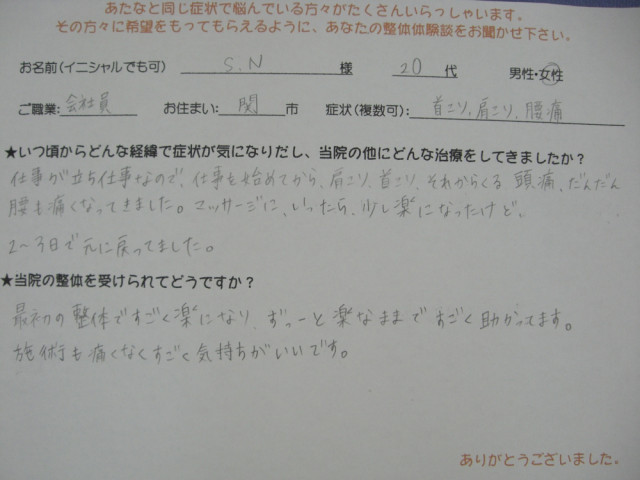 あなたと同じ症状で悩んでいる方々がたくさんいらっしゃいます。
その方々に希望をもってもらえるように、あなたの整体体験談をお聞かせ下さい。
お名前(イニシャルでも可) S.N 様 20 代 男性・女性
ご職業: 会社員 お住まい: 関 市 症状(複数可): 首こり, 肩こり、腰痛
★いつ頃からどんな経緯で症状が気になりだし、当院の他にどんな治療をしてきましたか?
仕事が立ち仕事なので、仕事を始めてから、肩こり、首こり、それからくる 頭痛、だんだん
腰も痛くなってきました。マッサージに、いったら、少し楽になったけど、
2〜3日で元に戻ってました。
★当院の整体を受けられてどうですか?
最初の整体ですごく楽になり、ずっーと楽なままですごく助かってます。
施術も痛くなくすごく気持ちがいいです。
ありがとうございました。